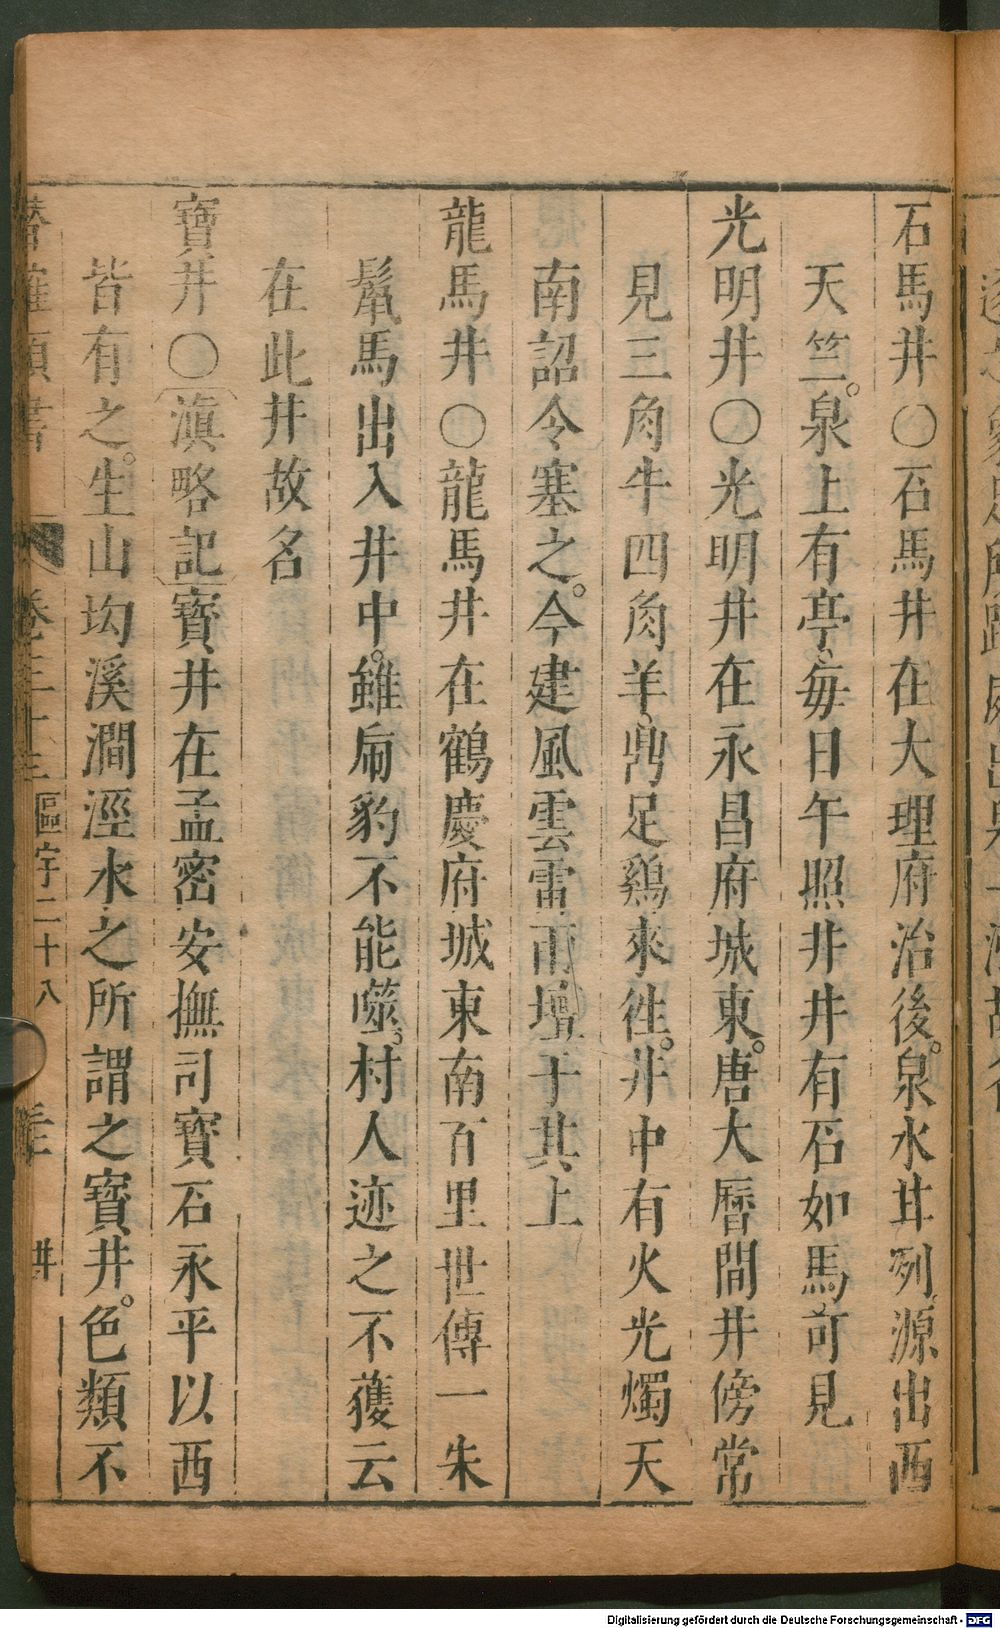 石馬井○石馬井在大理府治後。泉水甘列。源出西
天竺。泉上有亭、每日午照井井有石如馬可見
光明井○光明井在永昌府城東。唐大曆間井傍常
見三角牛四角羊、鼎足鷄來往。井中有火光燭天
南詔令塞之。今建風雲雷雨壇于其上
龍馬井○龍馬井在鶴慶府城東南百里世傳一朱
鬃馬出入井中。雖扁豹不能噬。村人迹之不獲云
在此井故名
寶井○滇略記寶井在孟密安撫司寶石永平以西
皆有之。生山坳溪澗涇水之所謂之寶井。色類不
卷三十三 區宇二十八 井
Digitalisierung gefördert durch die Deutsche Forschungsgemeinschaft - DFG